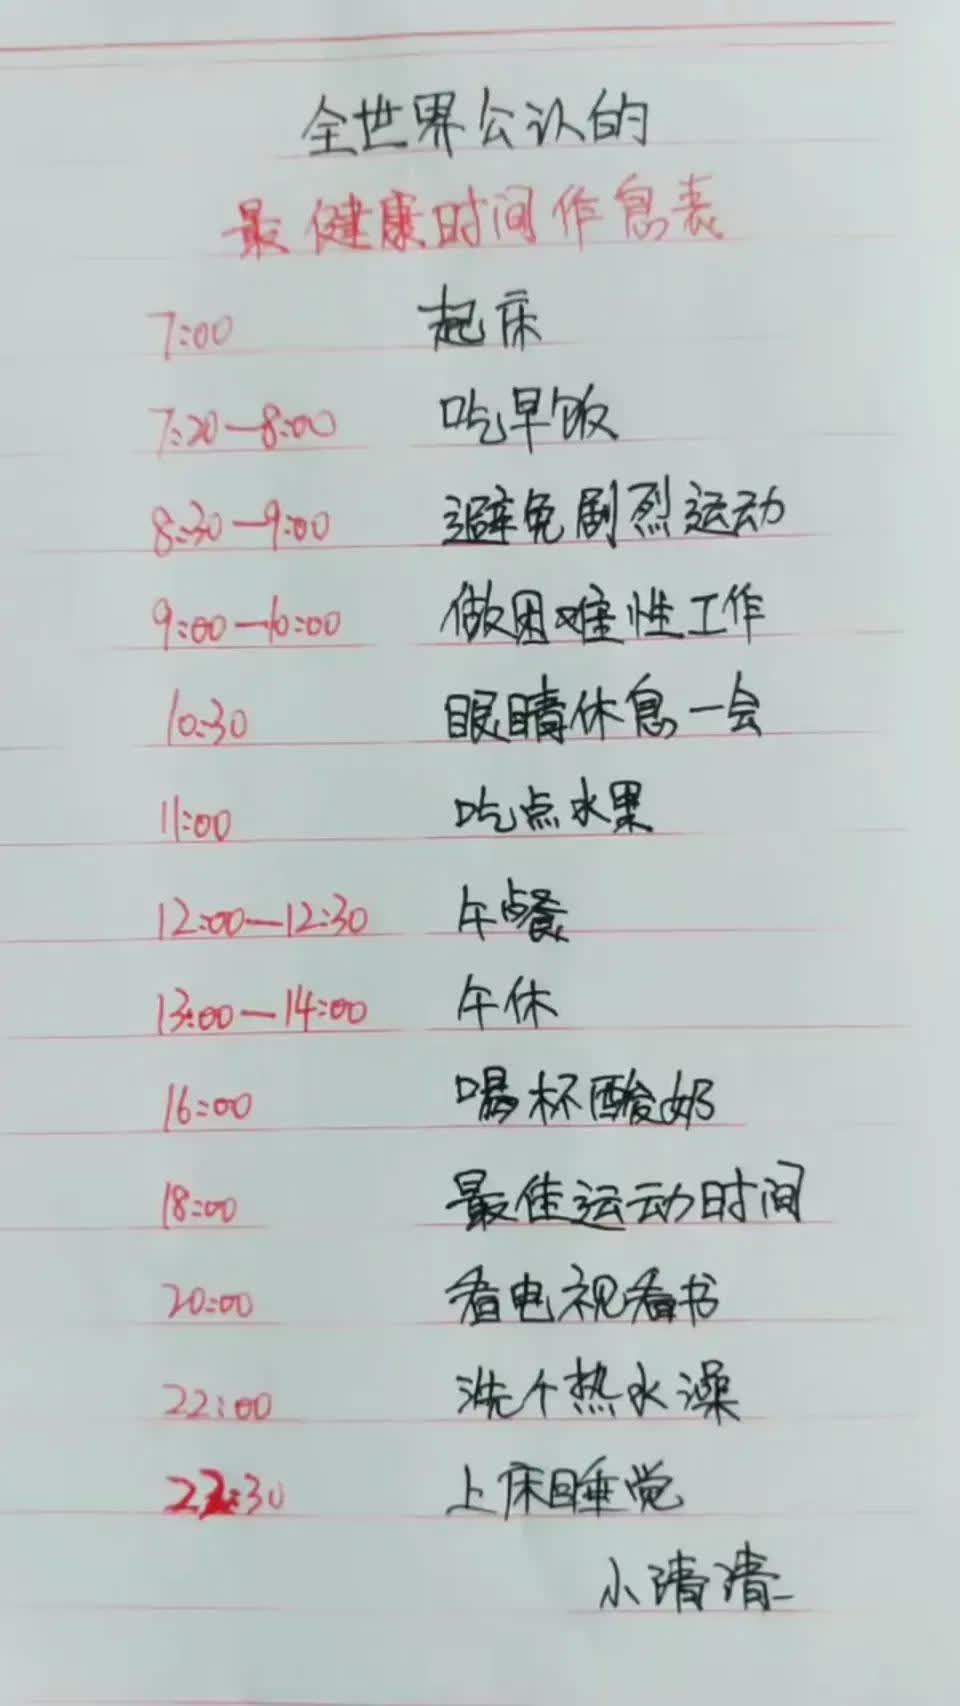 全世界公认的
最健康时间作息表
7:00 起床
7:20—8:00 吃早饭
8:30—9:00 避免剧烈运动
9:00—10:00 做困难性工作
10:30 眼睛休息一会
11:00 吃点水果
12:00—12:30 午餐
13:00—14:00 午休
16:00 喝杯酸奶
18:00 最佳运动时间
20:00 看电视看书
22:00 洗个热水澡
22:30 上床睡觉
小清清